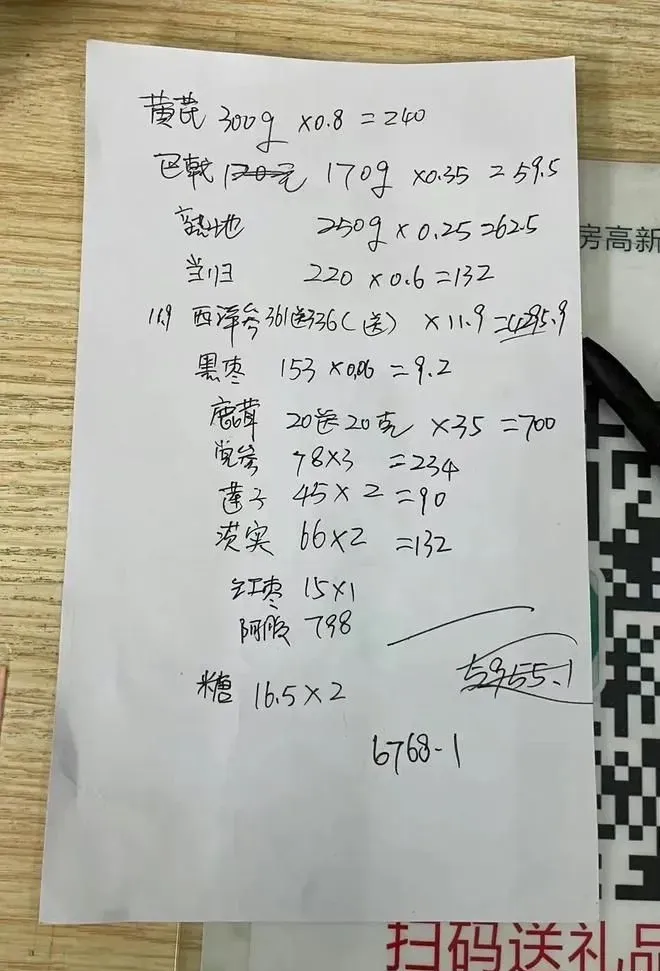 黄芪 300g ×0.8 =240
巴戟 120元 170g ×0.35 =59.5
熟地 250g × 0.25 262.5
当归 220 × 0.6 =132
11.9 西洋参 361送336(送) ×11.9 =4295.9
黑枣 153 ×0.06 =9.2
鹿茸 20送20克 ×35 =700
党参 78×3 =234
莲子 45×2 =90
茨实 66×2 =132
红枣 15×1
阿胶 798
5955.1
糖 16.5×2
6768-1
房高新
扫码送礼品